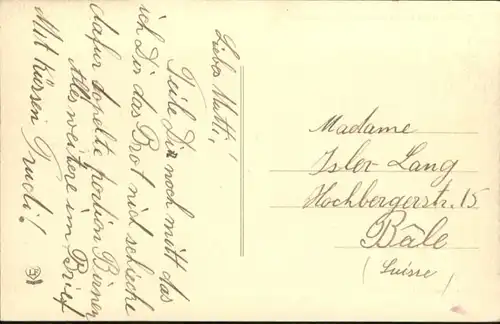 Liebes Mutti!
Teile Dir noch mitt das
ich Dir das Brot nid schicke
dafür dopelte portion Birnen
Alles weitere im Brief
Mit Küssen Trudi!
Madame
Isler-Lang
Hochbergerstr. 15
Bâle
(Suisse)